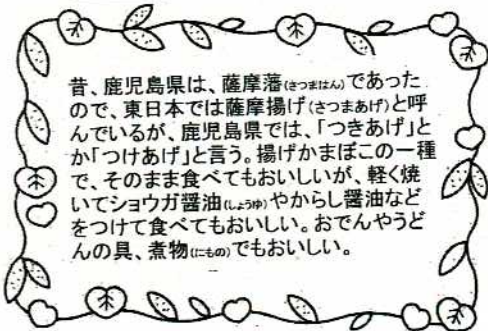 昔、鹿児島県は、薩摩藩(さつまはん)であった
ので、東日本では薩摩揚げ(さつまあげ)と呼
んでいるが、鹿児島県では、「つきあげ」と
か「つけあげ」と言う。揚げかまぼこの一種
で、そのまま食べてもおいしいが、軽く焼
いてショウガ醤油(しょうゆ)やからし醤油など
をつけて食べてもおいしい。おでんやうど
んの具、煮物(にもの)でもおいしい。